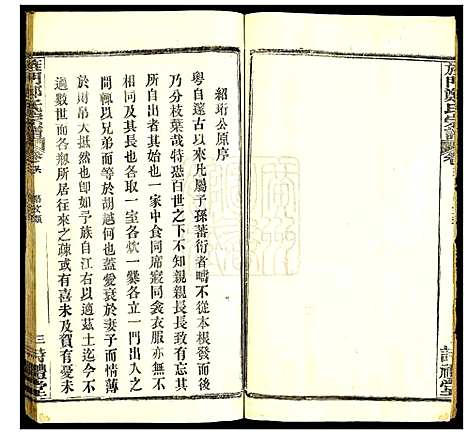 紹珩公原序
粵自邃古以來凡屬子孫蕃衍者疇不從本根發而後
乃分枝葉哉特礙百世之下不知親親長長致有忘其
所自出者其始也一家中食同席寢同衾衣服亦無不
同及其長也各取一室各炊一爨各立一門內人出人
間輒以兄弟而等於胡越何也蓋愛衰於妻子而情薄
於則吊大抵然也卽如予族自江右以適茲土迄今不
過數世而各刱所居往來之疎或有喜未及慶有憂未
旌門鄭氏宗譜
三
詩禮堂
旌門鄭氏宗譜
詩禮堂